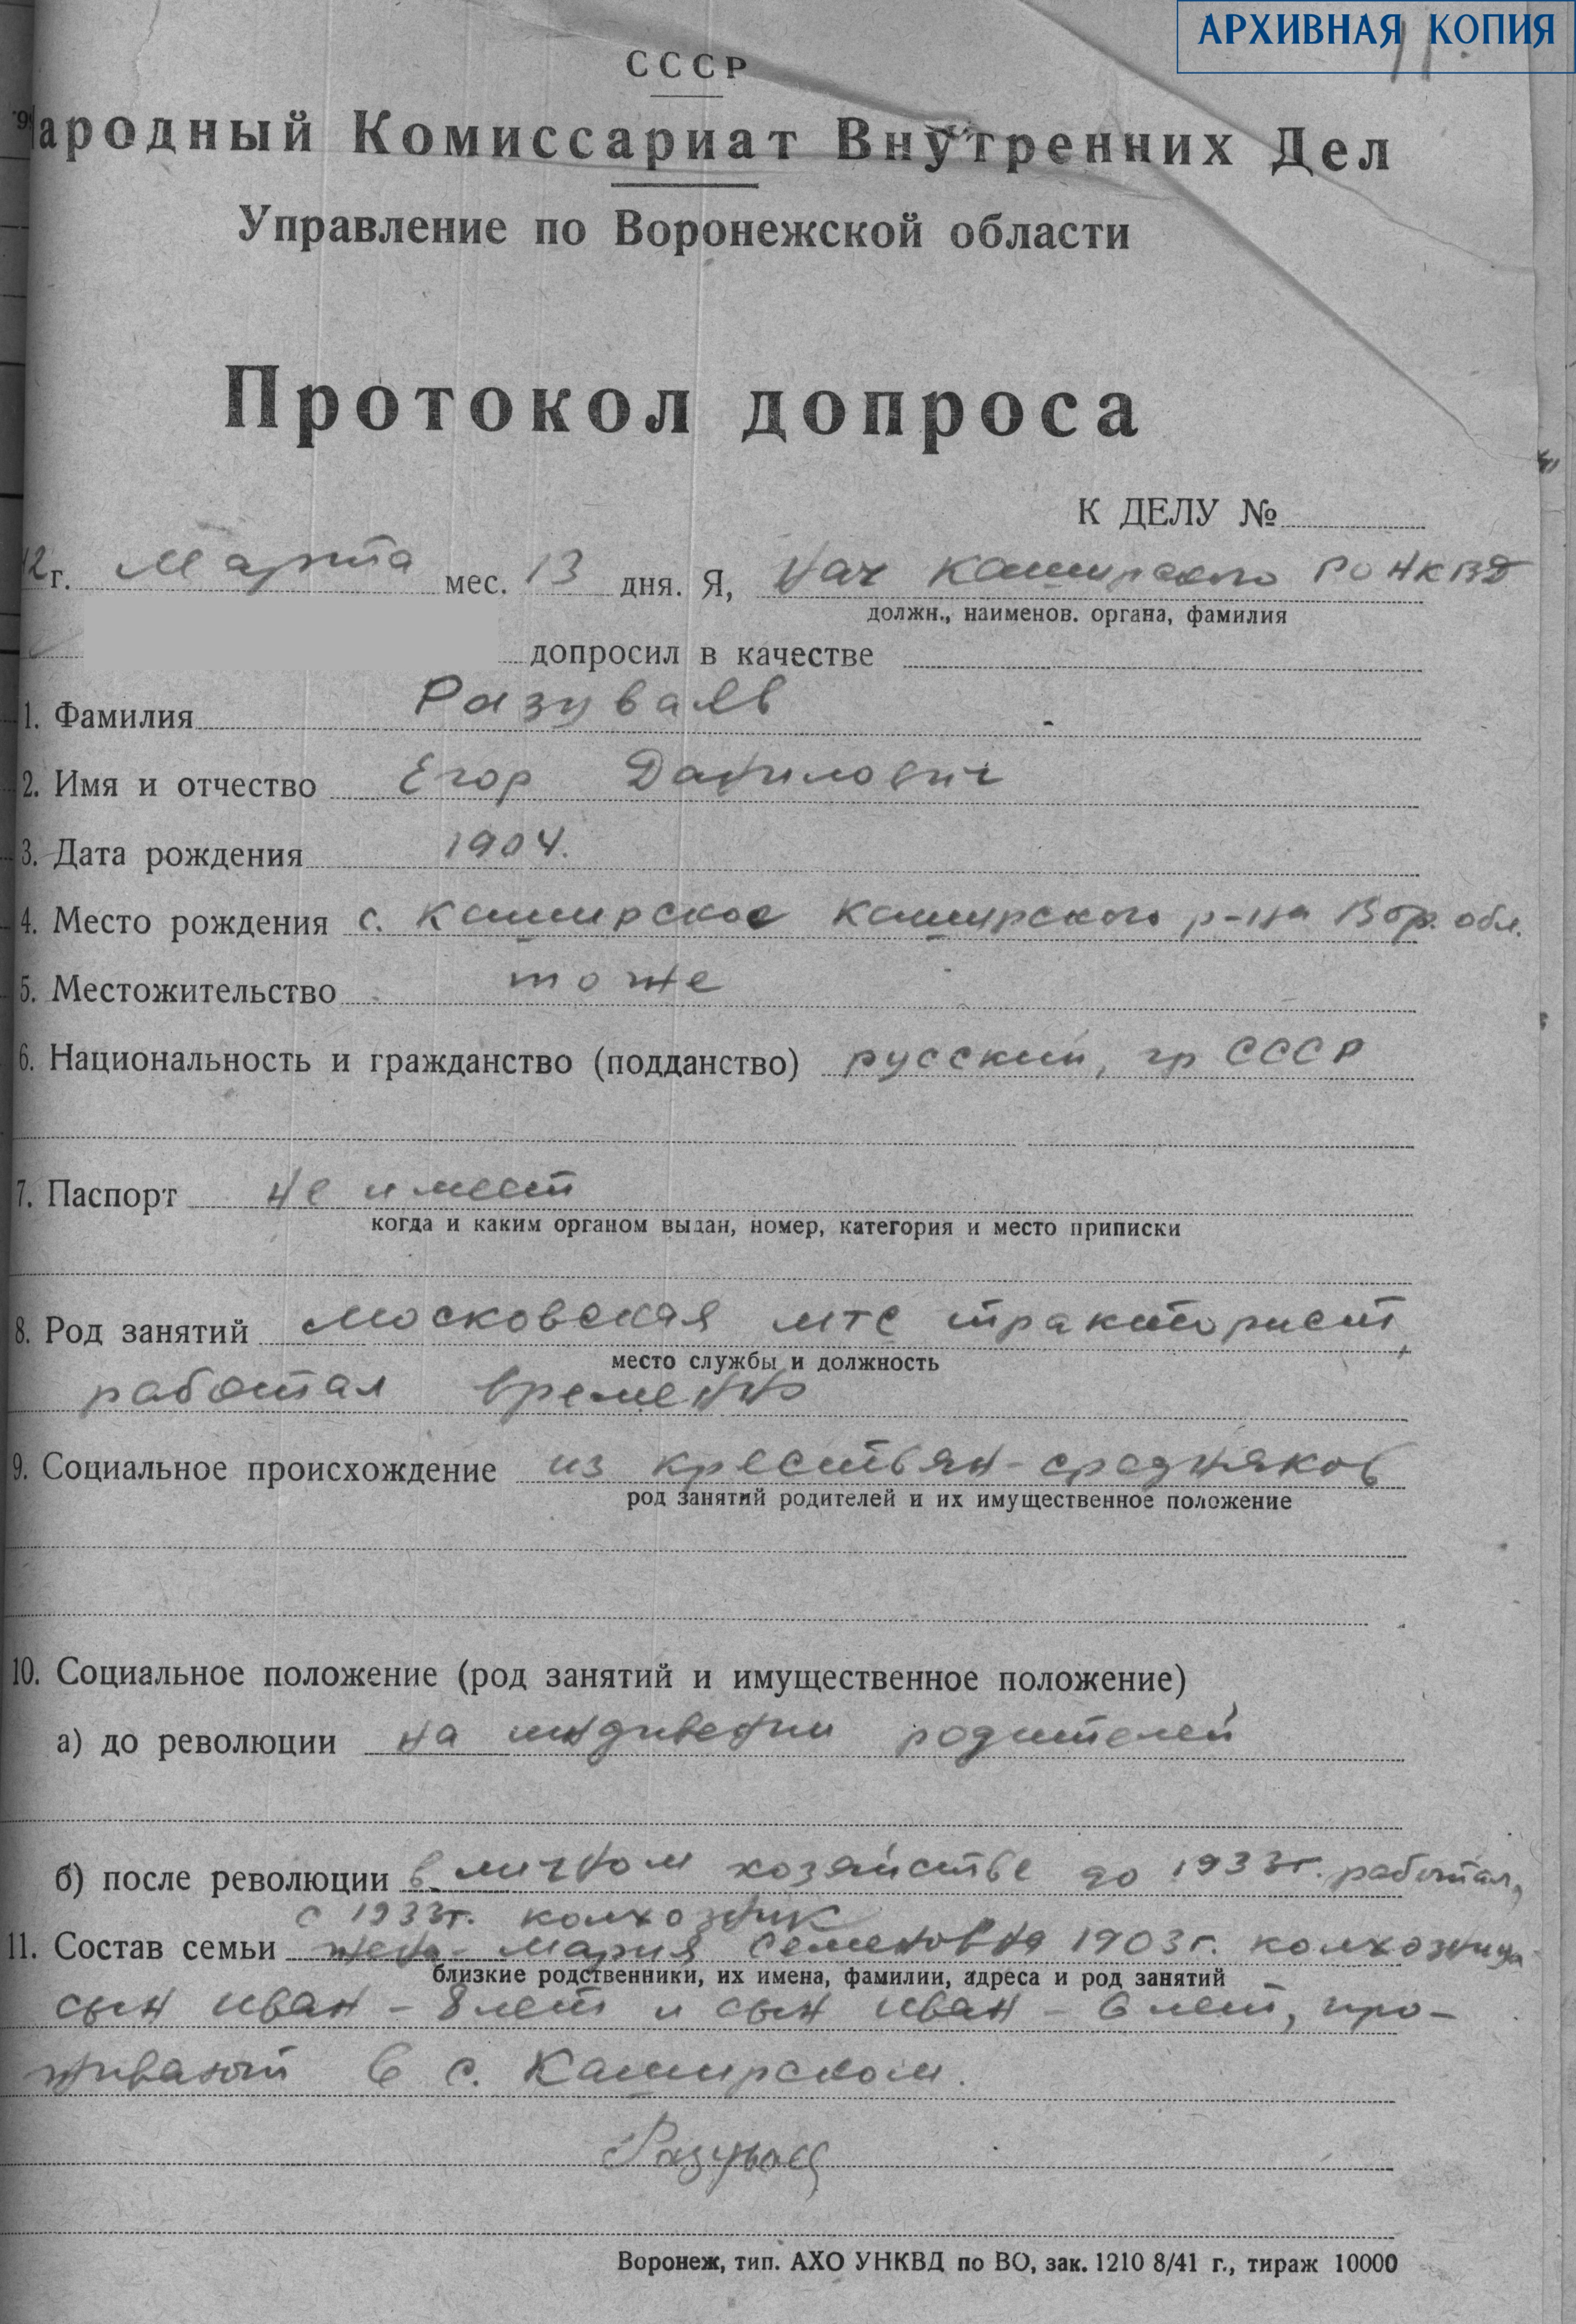 АРХИВНАЯ КОПИЯ
СССР
Народный Комиссариат Внутренних Дел
Управление по Воронежской области
Протокол допроса
К ДЕЛУ №
42 г. Марта мес. 13 дня. Я, Нач Каширского РО НКВД
должн., наименов. органа, фамилия
допросил в качестве
1. Фамилия Разуваев
2. Имя и отчество Егор Данилович
3. Дата рождения 1904.
4. Место рождения с. Каширское Каширского р-на Вор. обл.
5. Местожительство тоже
6. Национальность и гражданство (подданство) русский, гр СССР
7. Паспорт не имеет
когда и каким органом выдан, номер, категория и место приписки
8. Род занятий Московская мтс тракторист,
место службы и должность
работал временно
9. Социальное происхождение из крестьян-середняков
род занятий родителей и их имущественное положение
10. Социальное положение (род занятий и имущественное положение)
а) до революции на иждивении родителей
б) после революции в личном хозяйстве до 1933г. работал,
с 1933г. колхозник
11. Состав семьи жена - Мария Семеновна 1903г. колхозница
близкие родственники, их имена, фамилии, адреса и род занятий
сын Иван - 8 лет и сын Иван - 6 лет, про-
живают в с. Каширском.
Разуваев
Воронеж, тип. АХО УНКВД по ВО, зак. 1210 8/41 г., тираж 10000